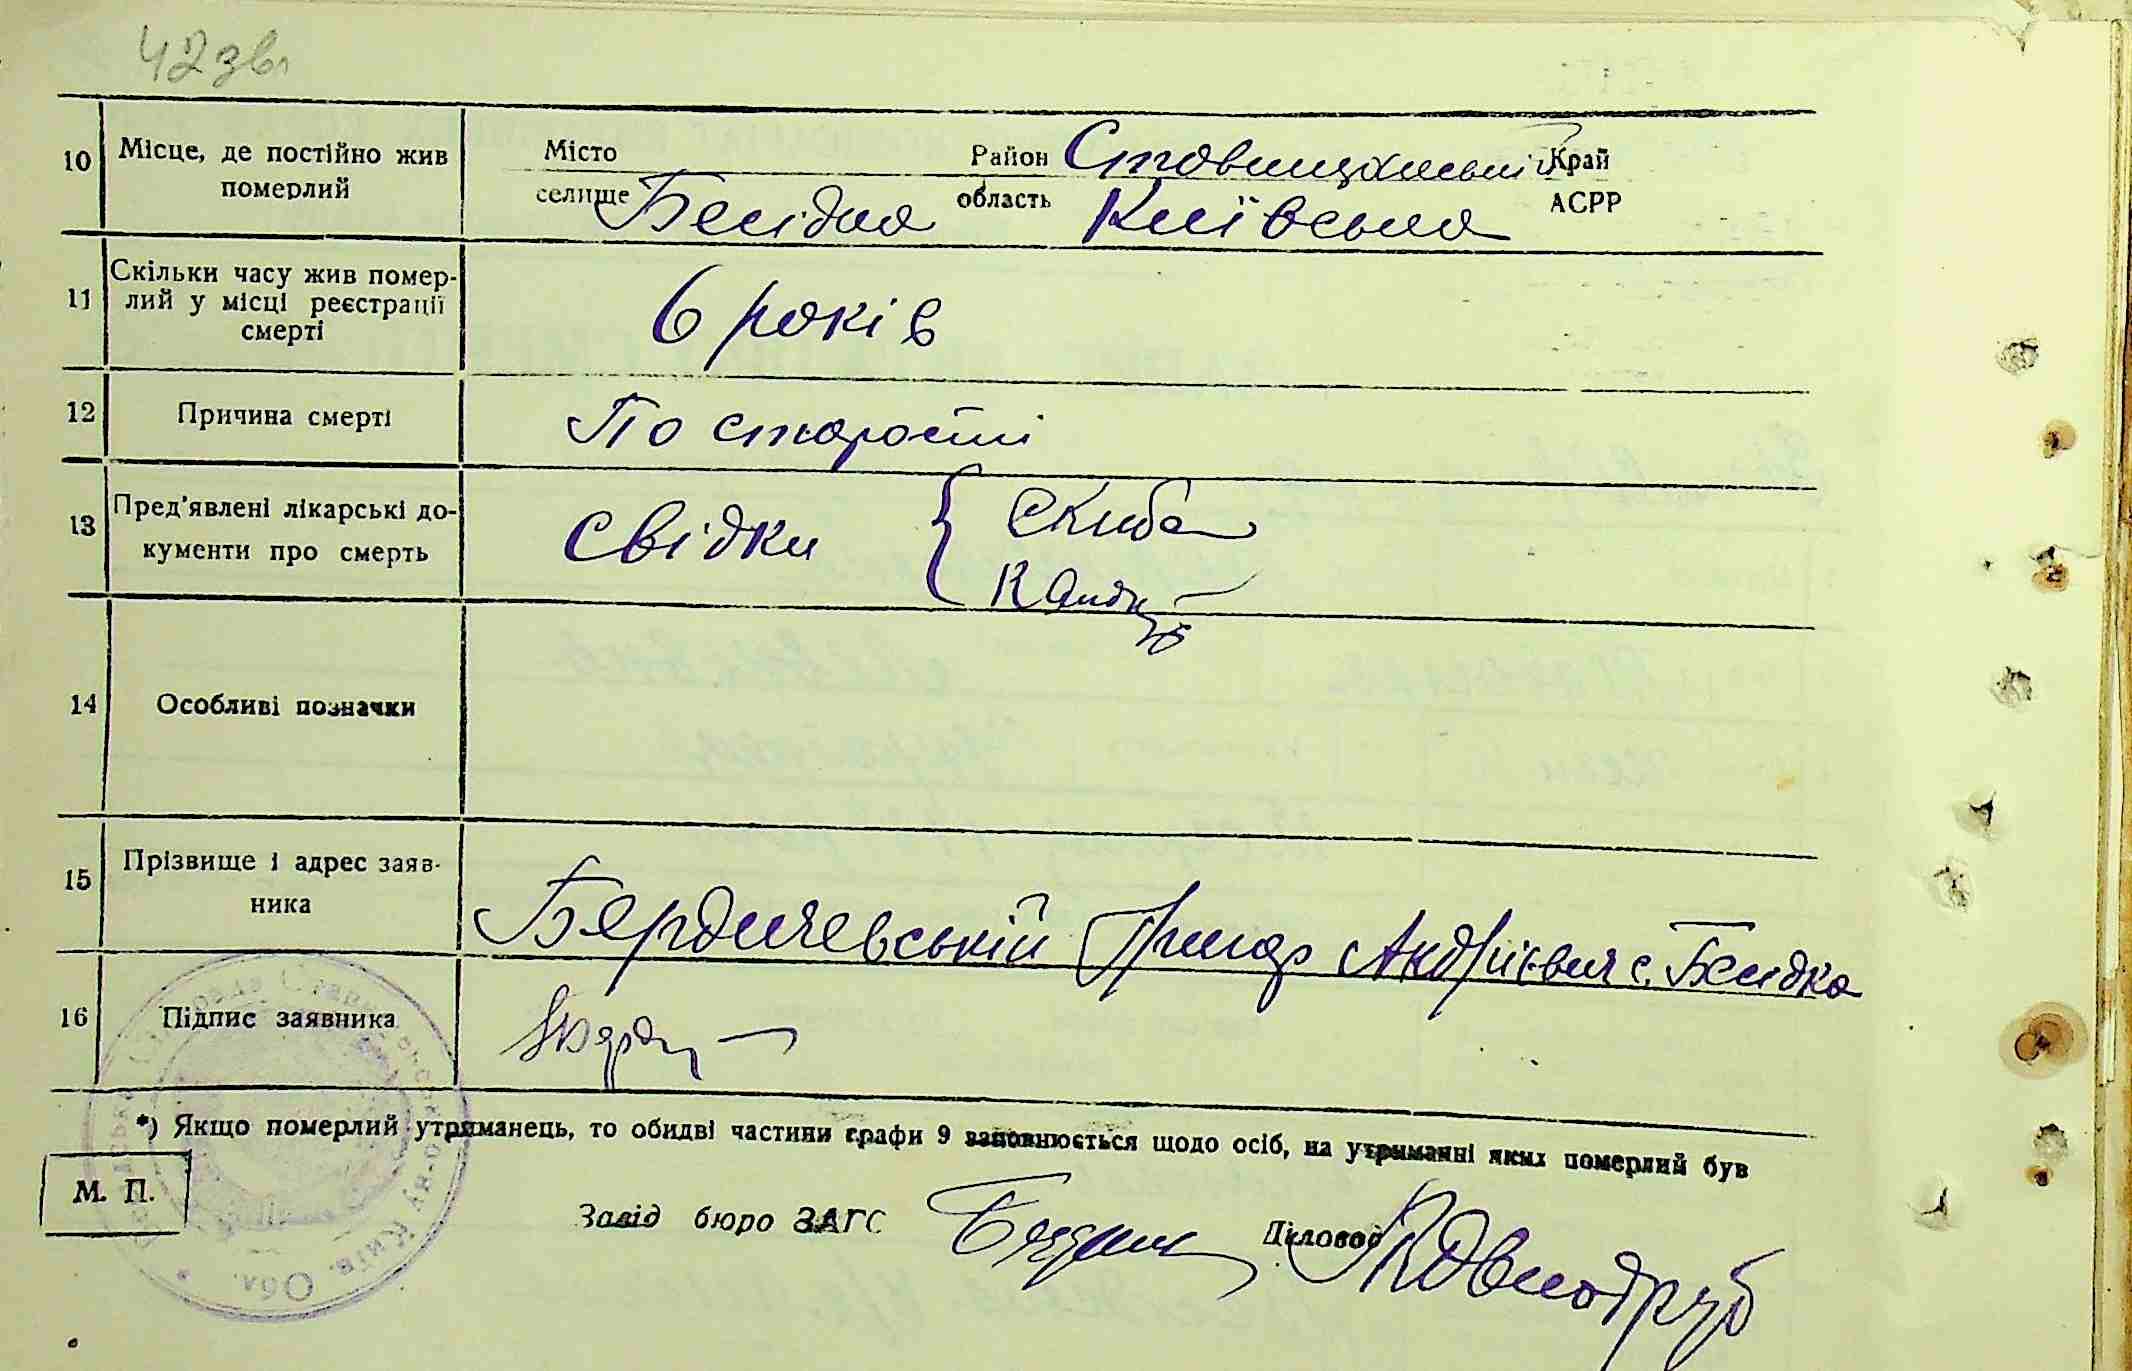 42 зв.
10 Місце, де постійно жив Місто Район Ставищанський Край
померлий селище Бесідка область Київська АСРР
11 Скільки часу жив помер-
лий у місці реєстрації 6 років
смерті
12 Причина смерті По старості
13 Пред'явлені лікарські до- свідки { Скиба
кументи про смерть
14 Особливі позначки
15 Прізвище і адрес заяв-
ника Бердичевській Григор Андрієвич с. Бесидка
16 Підпис заявника
*) Якщо померлий утриманець, то обидві частини графи 9 заповнюється щодо осіб, на утриманні яких померлий був
М. П.
Завід бюро ЗАГС Діловод
Київ. Обл.